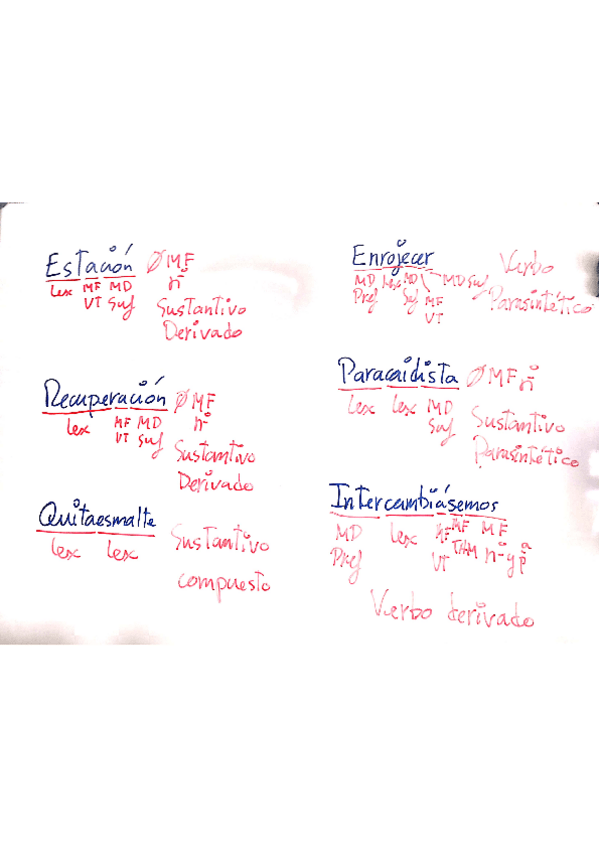 Estación Ø MF
Lex MF MD nº
VT Suf Sustantivo
Derivado
Recuperación Ø MF
Lex MF MD nº
VT Suf Sustantivo
Derivado
Quitaesmalte
Lex Lex Sustantivo
compuesto
Enrojecer Verbo
MD Lex MD MD Suf
Pref Suf MF Parasintético
VT
Paracaidista Ø MF nº
Lex Lex MD
Suf Sustantivo
Parasintético
Intercambiásemos
MD Lex MF MF MF
Pref VT TAM nº y pª
Verbo derivado